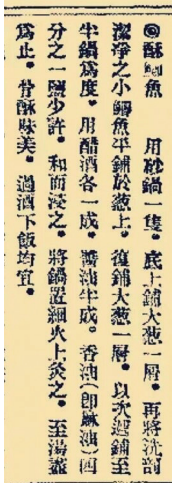 ◎酥鯽魚　用砂鍋一隻。底上鋪大葱一層。再將洗剖
潔淨之小鯽魚平鋪於葱上。復鋪大葱一層。以次遞鋪至
半鍋爲度。用醋酒各一成。醬油半成。香油（卽麻油）四
分之一鹽少許。和而浸之。將鍋置細火上灸之。至湯盡
爲止。骨酥味美。過酒下飯均宜。